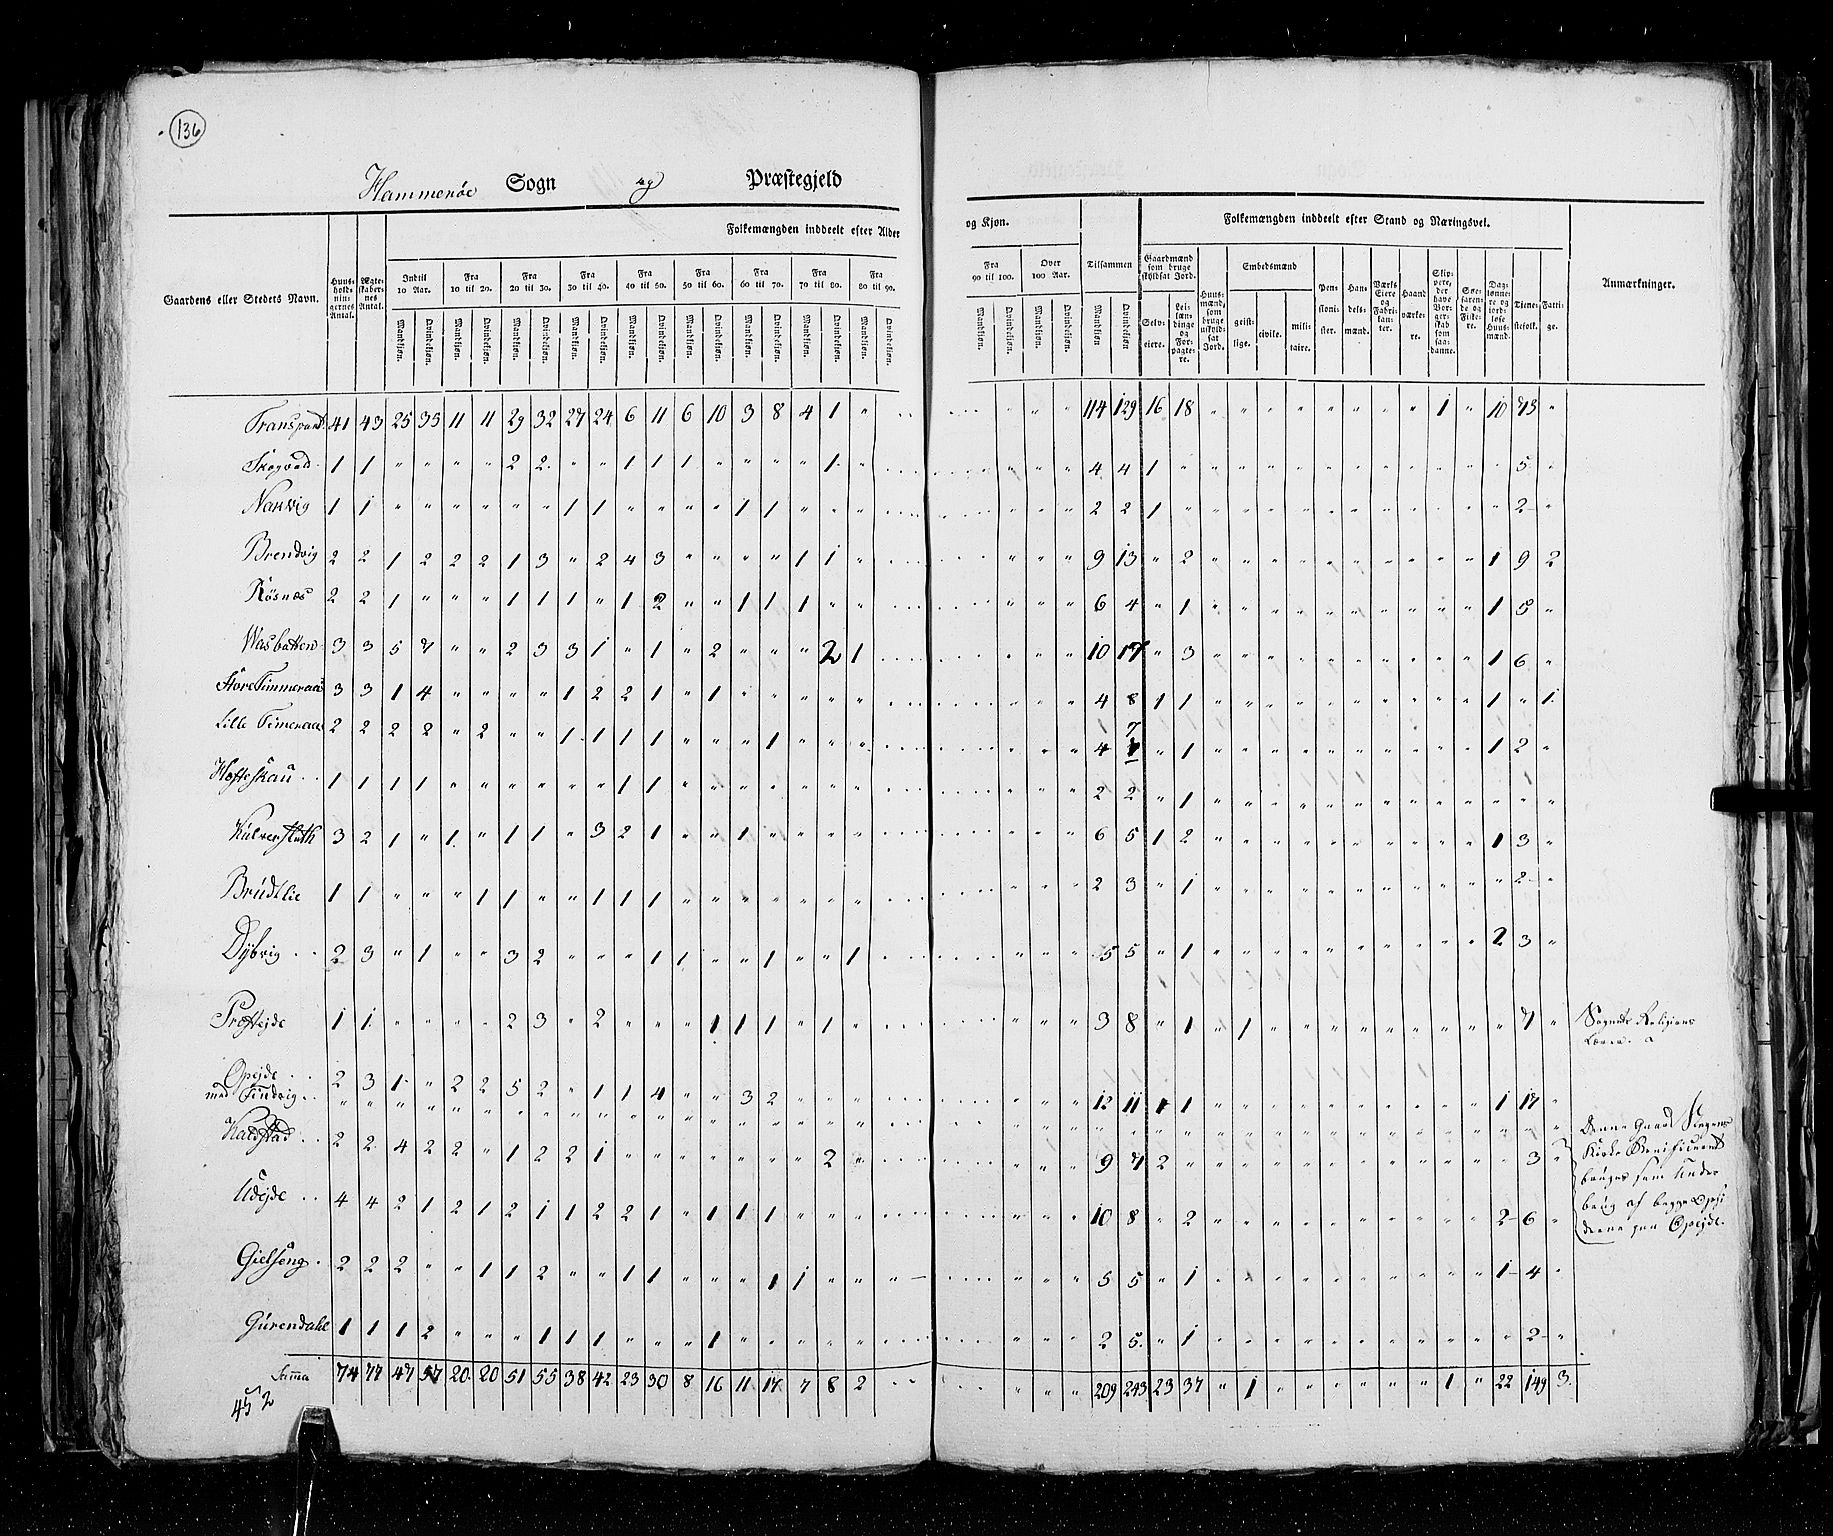 136
Hammerøe Sogn og Præstegjeld
Gaardens eller Stedets Navn.
Huus-holdnin-gernes Antal.
Ægte-skaber-nes Antal.
Folkemængden inddeelt efter Alder og Kjøn.
Indtil 10 Aar.
Fra 10 til 20.
Fra 20 til 30.
Fra 30 til 40.
Fra 40 til 50.
Fra 50 til 60.
Fra 60 til 70.
Fra 70 til 80.
Fra 80 til 90.
Fra 90 til 100.
Over 100 Aar.
Tilsammen
Mandkjøn. Qvindekjøn.
Folkemængden inddeelt efter Stand og Næringsvei.
Gaardmænd som bruge skyldsat Jord.
Selv-eiere.
Lei-lændinge og For-pagte-re.
Huus-mænd, som bruge uskyld-sat Jord.
Embedsmænd
geist-lige. civile. mili-taire.
Pen-sioni-ster.
Han-dels-mænd.
Værks Eiere og Fabri-kan-ter.
Haand værke-re.
Skip-pere, der have Bor-ger-skab som saa-danne.
Søe-farende og Fiske-re.
Dag-lønne-re og jord-løse Huus-mænd.
Tiene-stefolk.
Fatti-ge.
Anmærkninger.
Transport. 41 43 25 35 11 11 29 32 27 24 6 11 6 10 3 8 4 1 " 114 129 16 18 " " " " " " " " 1 " 10 73 "
Skogvold 1 1 " " " " 2 2 " " 1 1 1 " " " " 1 " 4 4 1 5 "
Narvig 1 1 " " " " " " 1 1 " " " " 1 1 " " " 2 2 1 2 "
Brendvig 2 2 1 2 2 2 1 3 " 2 4 3 " " " " 1 1 " 9 13 " 2 1 9 2
Røsnæs 2 2 1 " " " 1 1 1 " 1 2 " " 1 1 1 " " 6 4 " 1 1 5 "
Wasbotten 3 3 5 7 " " 2 3 3 1 " 1 " 2 " " " 2 1 10 17 " 3 1 6 "
Store Timmeraa 3 3 1 4 " " " " 1 2 2 1 " 1 " " " " " 4 8 1 1 1 " 1
Lille Timeraa 2 2 2 2 " 2 " " 1 1 1 1 " " " 1 " " " 4 7 " 1 1 2 "
1 1 1 1 " " " " " " 1 1 " " " " " " " 2 2 " 1 " " "
3 2 1 " 1 " 1 1 " 3 2 1 " " 1 " " " " 6 5 1 2 1 3 "
Brudlie 1 1 " " " 1 1 " " 1 1 1 " " " " " " " 2 3 " 1 " 2 "
Dybvig 2 3 " 1 " " 3 2 " " " 1 1 " " 1 " " 1 5 5 " 1 2 3 "
1 1 " " " " 2 3 " 2 " " " 1 1 1 " 1 " 3 8 " 1 " 1 7 " Sognets Religions
Lærer.
Opejde 2 3 1 " 2 2 5 2 " 1 1 4 " " 3 2 12 11 1 1 1 17 "
med Findvig
Kaldstad 2 2 4 2 2 " 1 2 2 1 " " " " " " " 2 " 9 7 2 3 " Denne Gaard
Kirke
bruges som Under
brug af begge
paa Opejde.
Udejde 4 4 2 1 2 1 2 1 1 2 2 1 " 1 1 1 " " " 10 8 " 2 2 6 "
2 2 2 " " 1 1 2 " " 1 1 " " " 1 1 " " 5 5 " 1 1 4 "
Gurendahl 1 1 1 2 " " " 1 1 1 " " " 1 " " " " " 2 5 " 1 " 2 "
Suma 74 77 47 57 20 20 51 55 38 42 23 30 8 16 11 17 7 8 2 209 243 23 37 " 1 " " " " " " 1 " 22 149 3
452